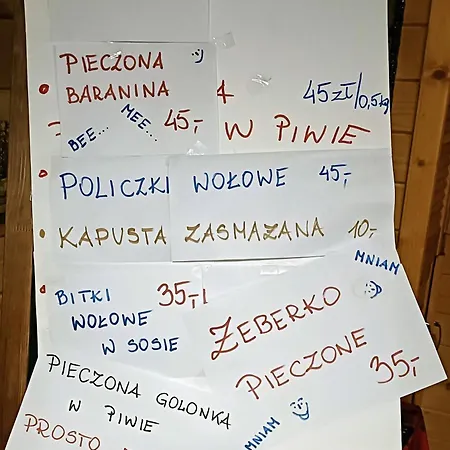 PIECZONA
BARANINA
BEE... MEE... 45,-
45zł/0,5kg
W PIWIE
POLICZKI WOŁOWE 45,-
KAPUSTA ZASMAŻANA 10,-
BITKI 35,-
WOŁOWE
W SOSIE
MNIAM
ŻEBERKO
PIECZONE
35,-
PIECZONA GOLONKA
W PIWIE
PROSTO
MNIAM